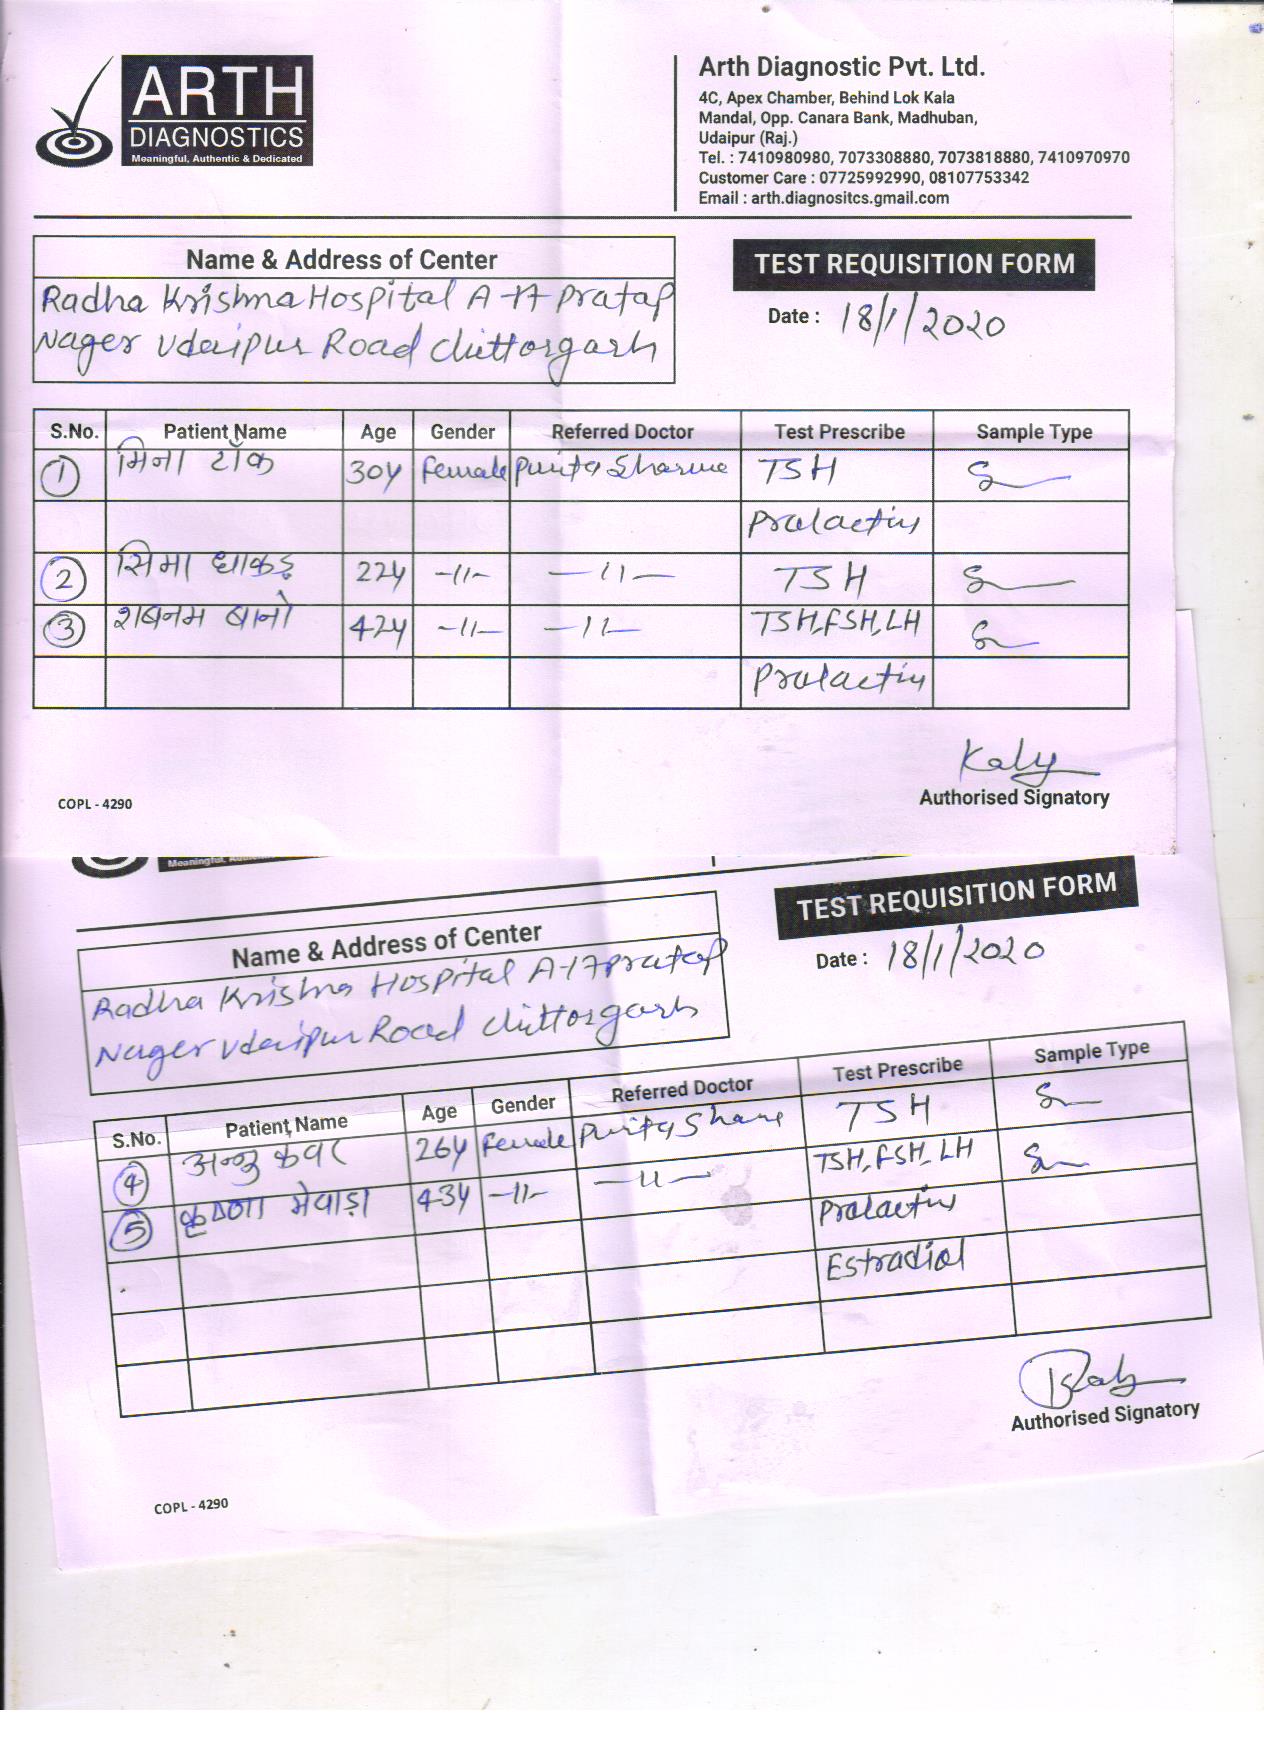 ARTH
DIAGNOSTICS
Meaningful, Authentic & Dedicated
Arth Diagnostic Pvt. Ltd.
4C, Apex Chamber, Behind Lok Kala
Mandal, Opp. Canara Bank, Madhuban,
Udaipur (Raj.)
Tel. : 7410980980, 7073308880, 7073818880, 7410970970
Customer Care : 07725992990, 08107753342
Email : arth.diagnositcs.gmail.com
Name & Address of Center
Radha Krishna Hospital A-17 Pratap
Nager Udaipur Road Chittorgarh
TEST REQUISITION FORM
Date : 18/1/2020
S.No. Patient Name Age Gender Referred Doctor Test Prescribe Sample Type
1 मिना टॉक 30y Female Sharma TSH S
Prolactin
2 सिमा धाकड़ 22y -11- -11- TSH S
3 शबनम बानो 42y -11- -11- TSH, FSH, LH S
Prolactin
Kaly
Authorised Signatory
COPL - 4290
Meaningful,
TEST REQUISITION FORM
Name & Address of Center
Radha Krishna Hospital A-17 Pratap
Nager Udaipur Road Chittorgarh
Date : 18/1/2020
S.No. Patient Name Age Gender Referred Doctor Test Prescribe Sample Type
4 अन्जु कवर 26y Female TSH S
5 कृष्णा मेवाड़ा 43y -11- -11- TSH, FSH, LH S
Prolactin
Estradiol
Authorised Signatory
COPL - 4290